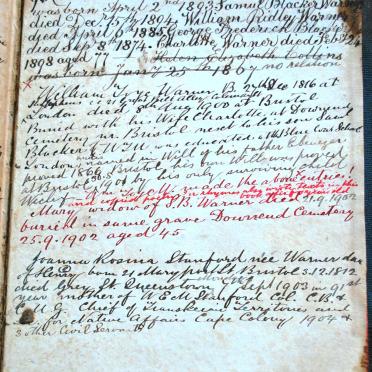 was born April 2nd 1893 Samuel Blacker Warner
died Dec 15th 1894. William Ridley Warner
died April 6 1885 George Frederick Black
died Sep 8 1874. Charlotte Warner died Feb 24
1898 aged 77 Helen Elizabeth Collins
was born Jany 25th 1867 no relation
William Tyas Warner B. 1816 at
London died 1900 at Bristol
Buried with his Wife Charlotte, at Downend
Cemetery nr. Bristol next to his son Saml
Blacker. W.T.W. was educated at the Blue Coat School
London and named in Will of his father Ebenezer
proved 1866 Bristol. His own Will was proved
at Bristol 1901 by his only surviving child
made the above entries
and copied poetry or rhymes also wrote texts in this
book
Mary widow of S.B. Warner died 21.9.1902
buried in same grave Downend Cemetery
25.9.1902 aged 45
Joanna Rosina Stanford née Warner dau
of Henry born 21 Mary St Bristol 3.12.1812
died Grey St. Queenstown Sept 1903 in 91st
year mother of W.E.M. Stanford Col. C.B. &
C.M.G. Chief of Transkeian Territories and
Native Affairs Cape Colony 1904 &
3 other Civil Servants